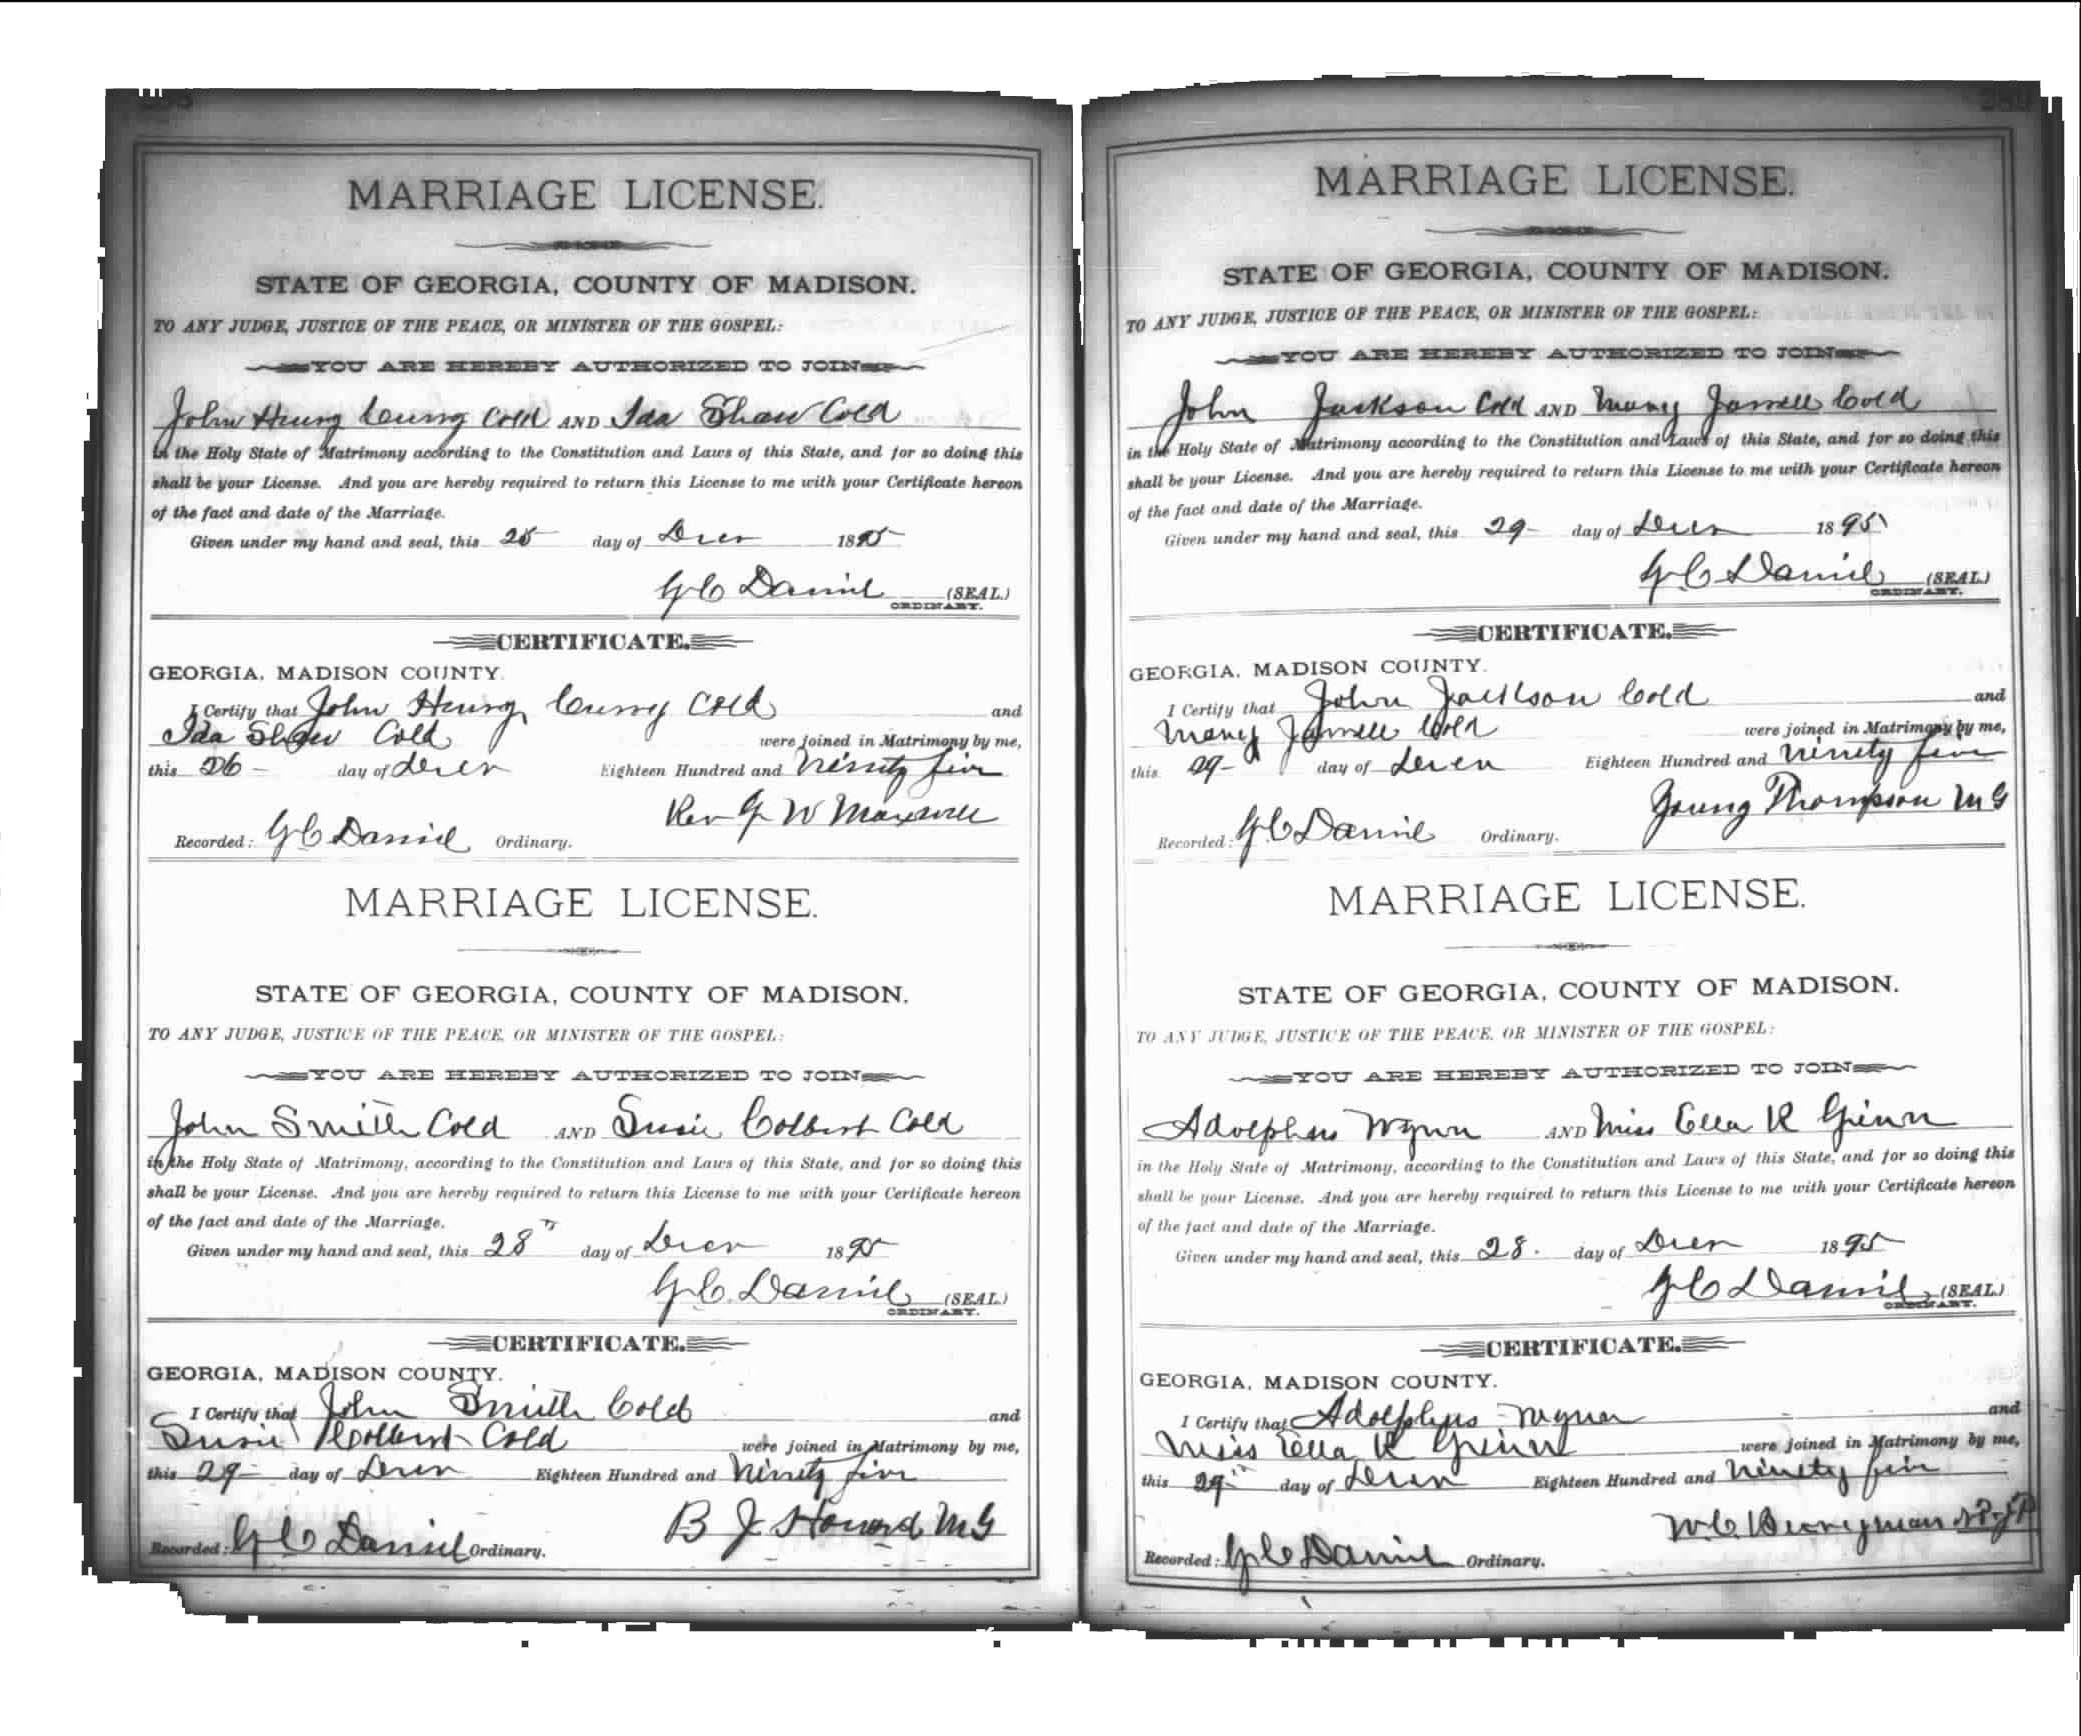 MARRIAGE LICENSE.
STATE OF GEORGIA, COUNTY OF MADISON.
TO ANY JUDGE, JUSTICE OF THE PEACE, OR MINISTER OF THE GOSPEL:
YOU ARE HEREBY AUTHORIZED TO JOIN
John Henry Curry Cold AND Ida Shaw Cold
in the Holy State of Matrimony according to the Constitution and Laws of this State, and for so doing this
shall be your License. And you are hereby required to return this License to me with your Certificate hereon
of the fact and date of the Marriage.
Given under my hand and seal, this 25 day of Decr 1895
G C Daniel (SEAL)
ORDINARY.
CERTIFICATE.
GEORGIA, MADISON COUNTY.
I Certify that John Henry Curry Cold and
Ida Shaw Cold were joined in Matrimony by me,
this 26 day of Decr Eighteen Hundred and Ninety five
Rev G W Maxwell
Recorded: G C Daniel Ordinary.
MARRIAGE LICENSE.
STATE OF GEORGIA, COUNTY OF MADISON.
TO ANY JUDGE, JUSTICE OF THE PEACE, OR MINISTER OF THE GOSPEL:
YOU ARE HEREBY AUTHORIZED TO JOIN
John Smith Cold AND Susie Colbert Cold
in the Holy State of Matrimony, according to the Constitution and Laws of this State, and for so doing this
shall be your License. And you are hereby required to return this License to me with your Certificate hereon
of the fact and date of the Marriage.
Given under my hand and seal, this 28 day of Decr 1895
G C Daniel (SEAL)
ORDINARY.
CERTIFICATE.
GEORGIA, MADISON COUNTY.
I Certify that John Smith Cold and
Susie Colbert Cold were joined in Matrimony by me,
this 29 day of Decr Eighteen Hundred and Ninety five
B J Howard MG
Recorded: G C Daniel Ordinary.
MARRIAGE LICENSE.
STATE OF GEORGIA, COUNTY OF MADISON.
TO ANY JUDGE, JUSTICE OF THE PEACE, OR MINISTER OF THE GOSPEL:
YOU ARE HEREBY AUTHORIZED TO JOIN
John Jackson Cold AND Mary Jarrell Cold
in the Holy State of Matrimony according to the Constitution and Laws of this State, and for so doing this
shall be your License. And you are hereby required to return this License to me with your Certificate hereon
of the fact and date of the Marriage.
Given under my hand and seal, this 29 day of Decr 1895
G C Daniel (SEAL)
ORDINARY.
CERTIFICATE.
GEORGIA, MADISON COUNTY.
I Certify that John Jackson Cold and
Mary Jarrell Cold were joined in Matrimony by me,
this 29 day of Decr Eighteen Hundred and Ninety five
Young Thompson MG
Recorded: G C Daniel Ordinary.
MARRIAGE LICENSE.
STATE OF GEORGIA, COUNTY OF MADISON.
TO ANY JUDGE, JUSTICE OF THE PEACE, OR MINISTER OF THE GOSPEL:
YOU ARE HEREBY AUTHORIZED TO JOIN
Adolphus Wynn AND Miss Ella K Ginn
in the Holy State of Matrimony, according to the Constitution and Laws of this State, and for so doing this
shall be your License. And you are hereby required to return this License to me with your Certificate hereon
of the fact and date of the Marriage.
Given under my hand and seal, this 28 day of Decr 1895
G C Daniel (SEAL)
ORDINARY.
CERTIFICATE.
GEORGIA, MADISON COUNTY.
I Certify that Adolphus Wynn and
Miss Ella K Ginn were joined in Matrimony by me,
this 29th day of Decr Eighteen Hundred and Ninety five
W C Berryman NP&JP
Recorded: G C Daniel Ordinary.